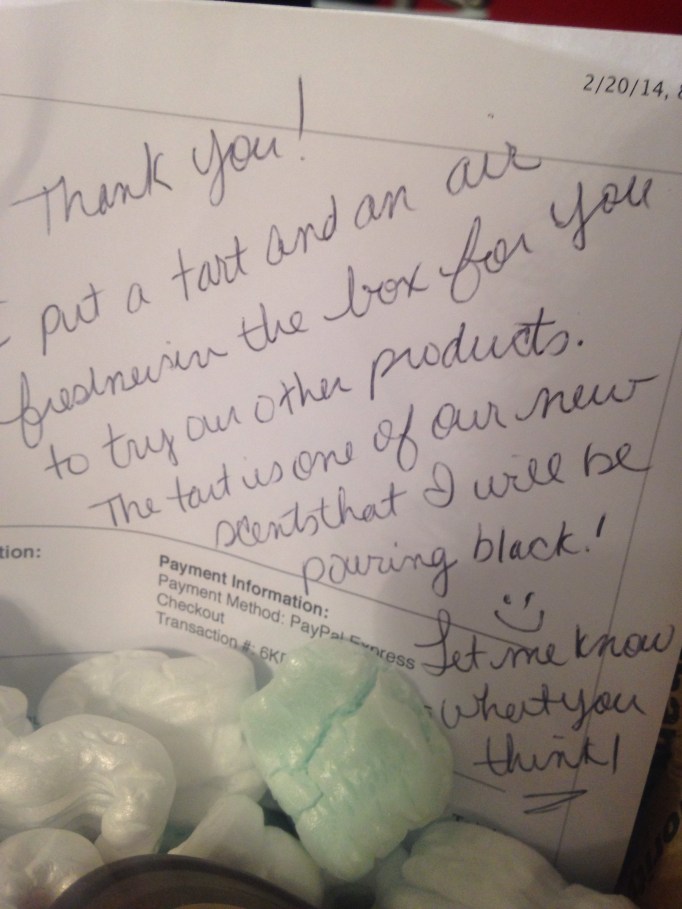 2/20/14,
Thank you!
I put a tart and an air
freshner in the box for you
to try our other products.
The tart is one of our new
scents that I will be
pouring black!
Let me know
what you
think!
tion:
Payment Information:
Payment Method: PayPal Express
Checkout
Transaction #: 6K